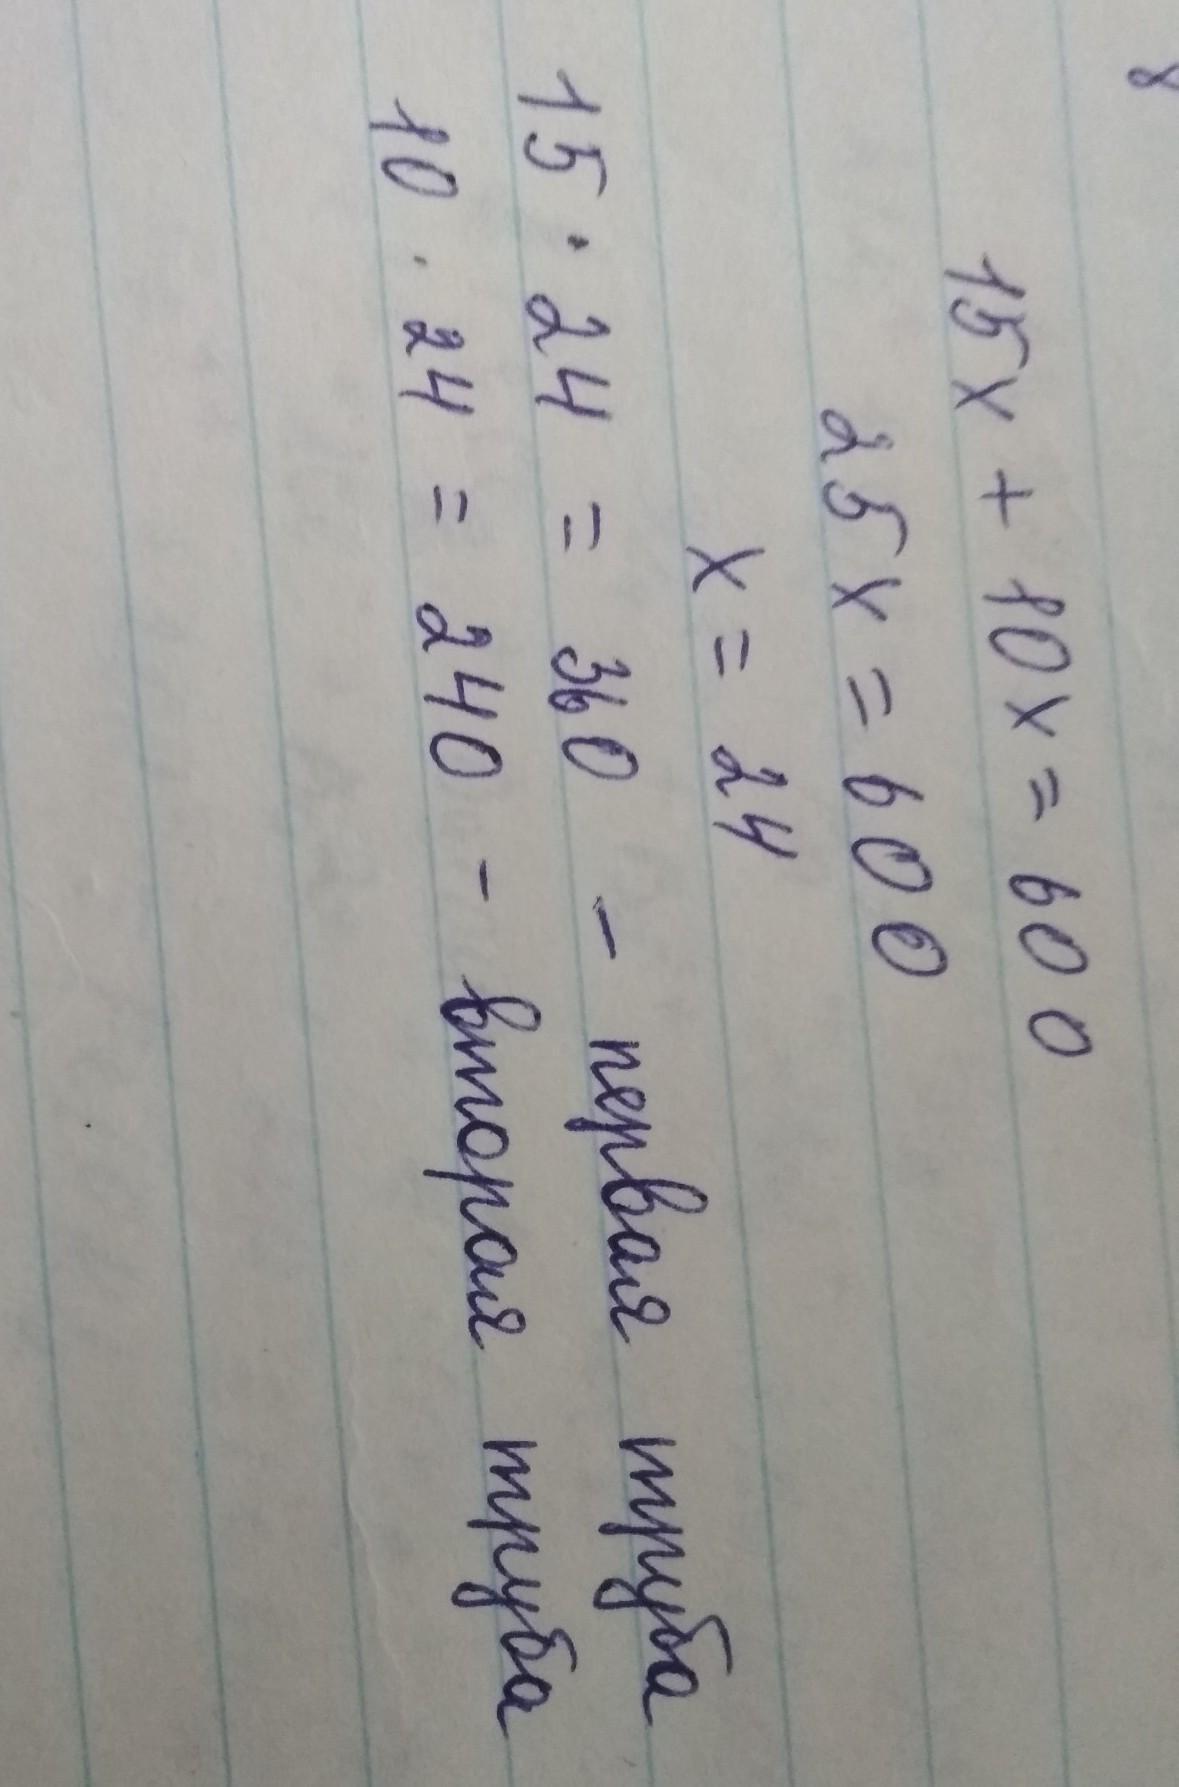 15x + 10x = 600
25x = 600
x = 24
15 · 24 = 360 - первая труба
10 · 24 = 240 - вторая труба